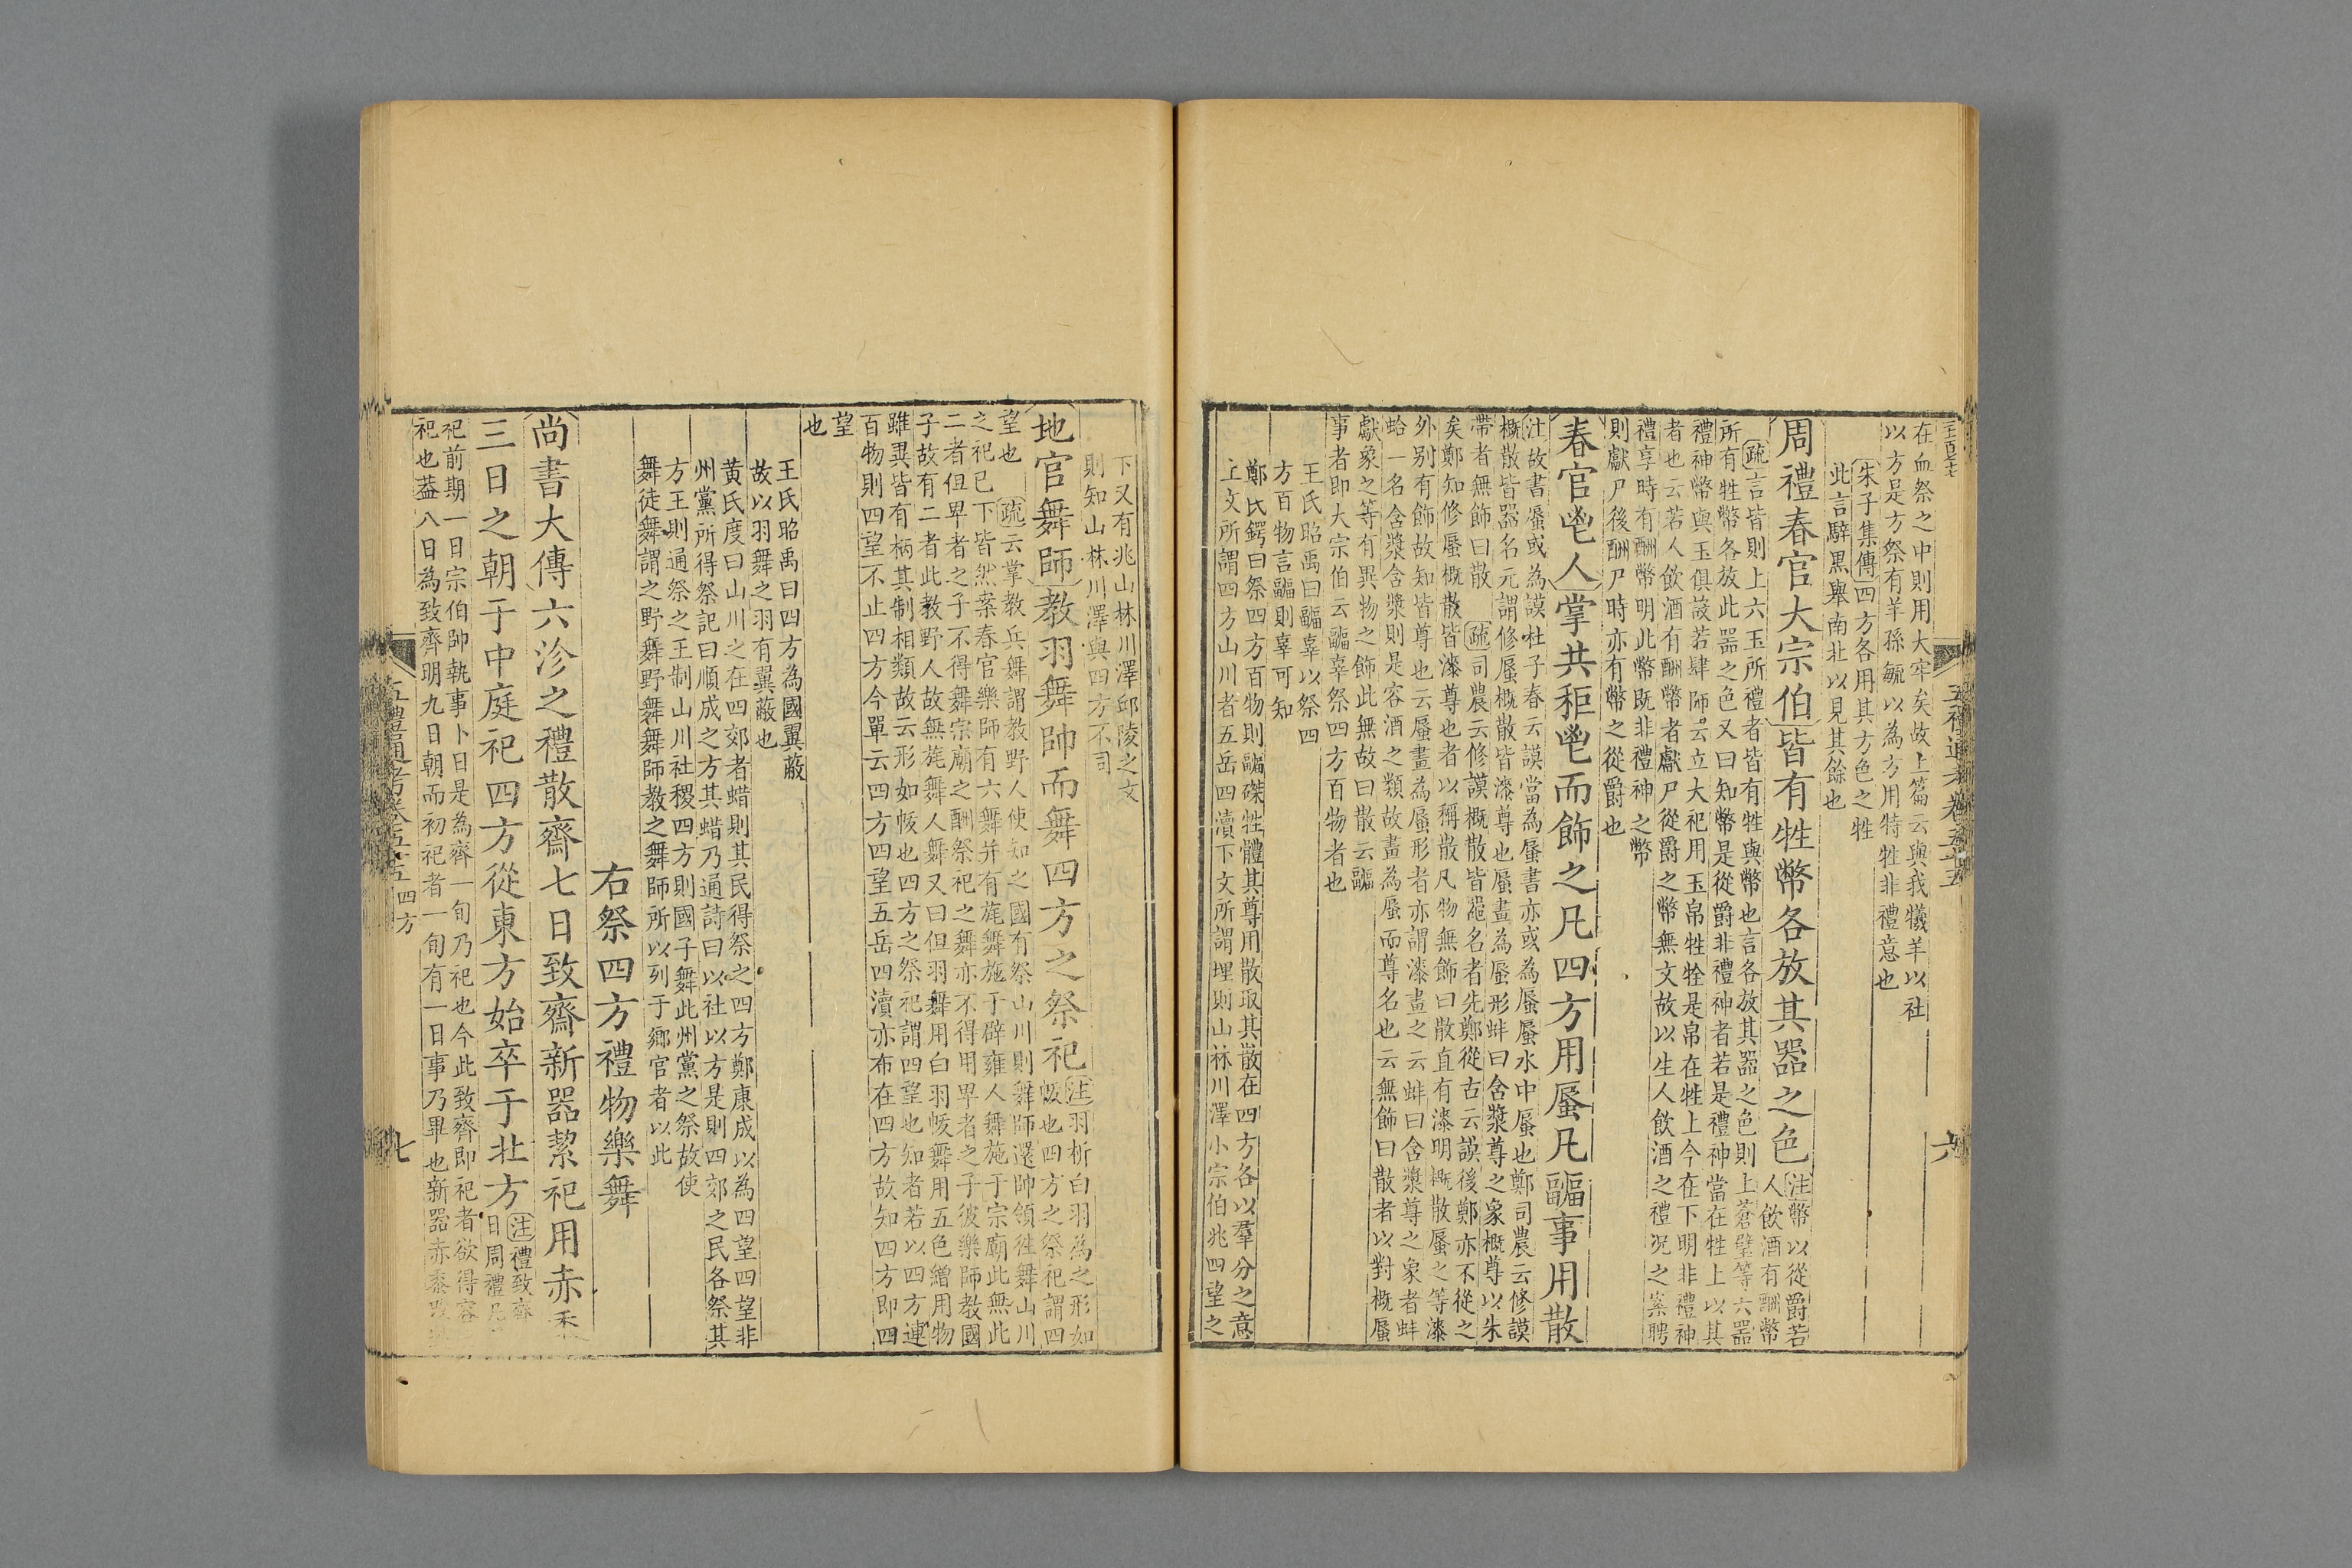 在血祭之中則用大牢矣故上篇云與我犧羊以社
以方是方祭有羊孫毓以為方用特牲非禮意也
朱子集傳四方各用其方色之牲
此言騂黑舉南北以見其餘也
周禮春官大宗伯皆有牲幣各放其器之色
注幣以從爵若
人飲酒有酬幣
疏言皆則上六玉所禮者皆有牲與幣也言各放其器之色則上蒼璧等六器
所有牲幣各放此器之色又曰知幣是從爵非禮神者若是禮神當在牲上以其
禮神幣與玉俱設若肆師云立大祀用玉帛牲牷是帛在牲上今在下明非禮神
者也云若人飲酒有酬幣者獻尸從爵之幣無文故以生人飲酒之禮况之案聘
禮享時有酬幣明此幣既非禮神之幣
則獻尸後酬尸時亦有幣之從爵也
春官鬯人掌共秬鬯而飾之凡四方用蜃凡疈事用散
注故書蜃或為謨杜子春云謨當為蜃書亦或為蜃蜃水中蜃也鄭司農云修謨
概散皆器名元謂修蜃概散皆漆尊也蜃畫為蜃形蚌曰含漿尊之象概尊以朱
帶者無飾曰散 疏司農云修謨概散皆器名者先鄭從古云謨後鄭亦不從之
矣鄭知修蜃概散皆漆尊也者以稱散凡物無飾曰散直有漆明概散蜃之等漆
外別有飾故知皆尊也云蜃畫為蜃形者亦謂漆畫之云蚌曰含漿尊之象者蚌
蛤一名含漿含漿則是容酒之類故畫為蜃而尊名也云無飾曰散者以對概蜃
獻象之等有異物之飾此無故曰散云疈
事者即大宗伯云疈辜祭四方百物者也
王氏昭禹曰疈辜以祭四
方百物言疈則辜可知
鄭氏鍔曰祭四方百物則疈磔牲體其尊用散取其散在四方各以羣分之意
上文所謂四方山川者五岳四瀆下文所謂埋則山林川澤小宗伯兆四望之
五禮通考卷五十五
六
下又有兆山林川澤邱陵之文
則知山林川澤與四方不司
地官舞師教羽舞帥而舞四方之祭祀
注羽析白羽為之形如
帗也四方之祭祀謂四
望也 疏云掌教兵舞謂教野人使知之國有祭山川則舞師還帥領往舞山川
之祀已下皆然案春官樂師有六舞并有旄舞施于辟雍人舞施于宗廟此無此
二者但卑者之子不得舞宗廟之酬祭祀之舞亦不得用卑者之子彼樂師教國
子故有二者此教野人故無旄舞人舞又曰但羽舞用白羽帗舞用五色繒用物
雖異皆有柄其制相類故云形如帗也四方之祭祀謂四望也知者若以四方連
百物則四望不止四方今單云四方四望五岳四瀆亦布在四方故知四方即四
望
也
王氏昭禹曰四方為國翼蔽
故以羽舞之羽有翼蔽也
黄氏度曰山川之在四郊者蜡則其民得祭之四方鄭康成以為四望四望非
州黨所得祭記曰順成之方其蜡乃通詩曰以社以方是則四郊之民各祭其
方王則通祭之王制山川社稷四方則國子舞此州黨之祭故使
舞徒舞謂之野舞野舞舞師教之舞師所以列于鄉官者以此
右祭四方禮物樂舞
尚書大傳六沴之禮散齋七日致齋新器絜祀用赤黍
三日之朝于中庭祀四方從東方始卒于北方
注禮致齊
日周禮凡
祀前期一日宗伯帥執事卜日是為齊一旬乃祀也今此致齊即祀者欲得容
祀也葢八日為致齊明九日朝而初祀者一旬有一日事乃畢也新器赤黍
五禮通考卷五十五 四方
七